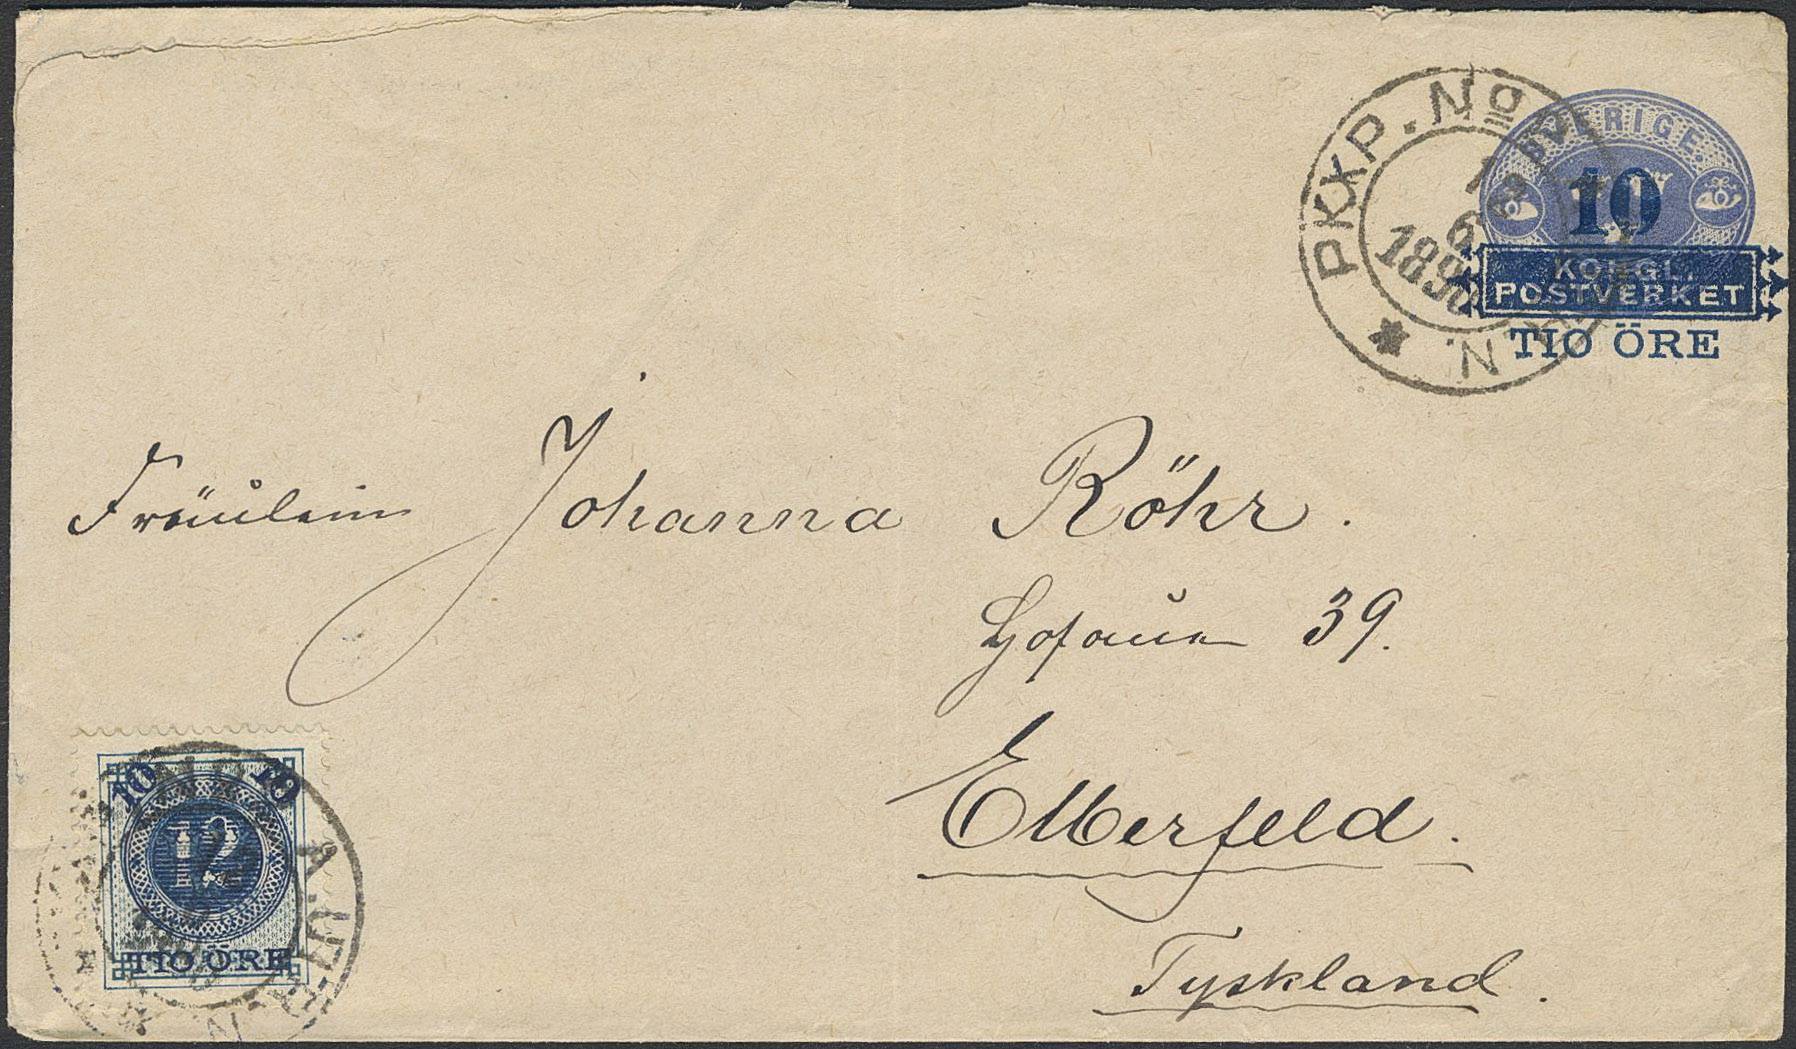 PKXP. No
SVERIGE.
10
1890
KONGL.
POSTVERKET
TIO ÖRE
N.
Fräulein Johanna Röhr.
Hofaue 39.
Elberfeld.
Tyskland.
10 10
12
TIO ÖRE